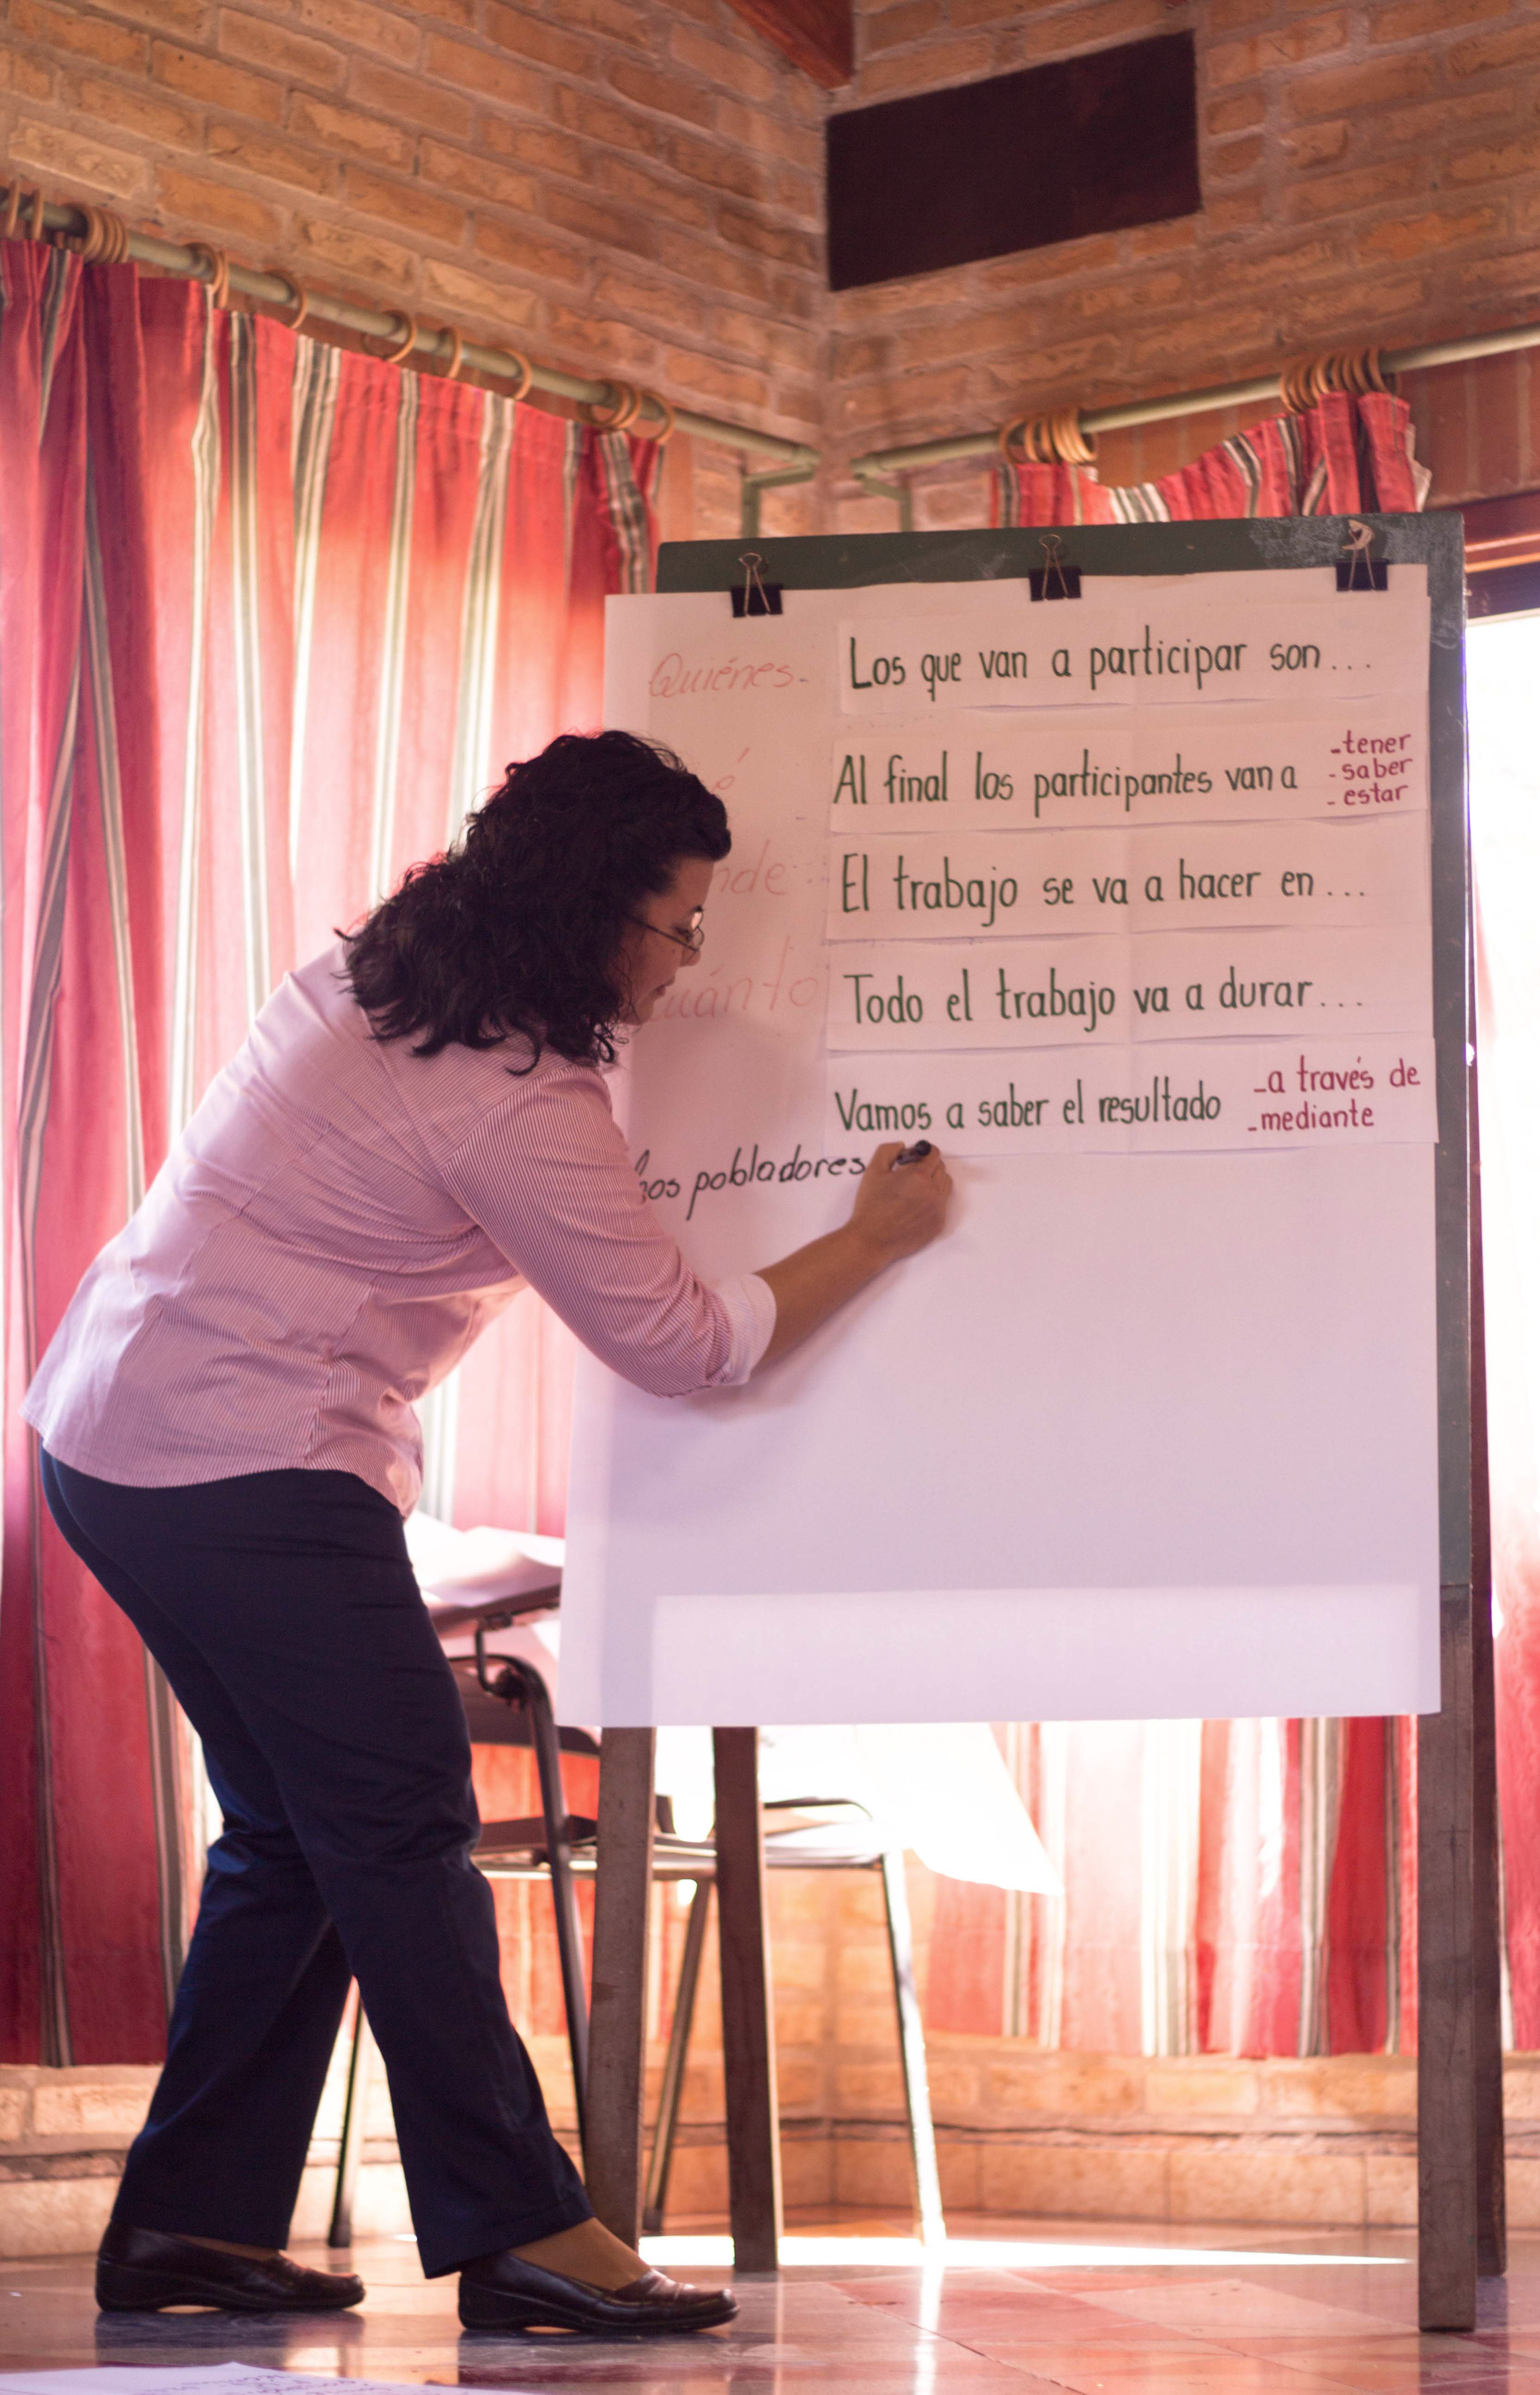 Quiénes.
Los que van a participar son...
Al final los participantes van a
-tener
-saber
-estar
El trabajo se va a hacer en...
Todo el trabajo va a durar...
Vamos a saber el resultado
-a través de
-mediante
pobladores